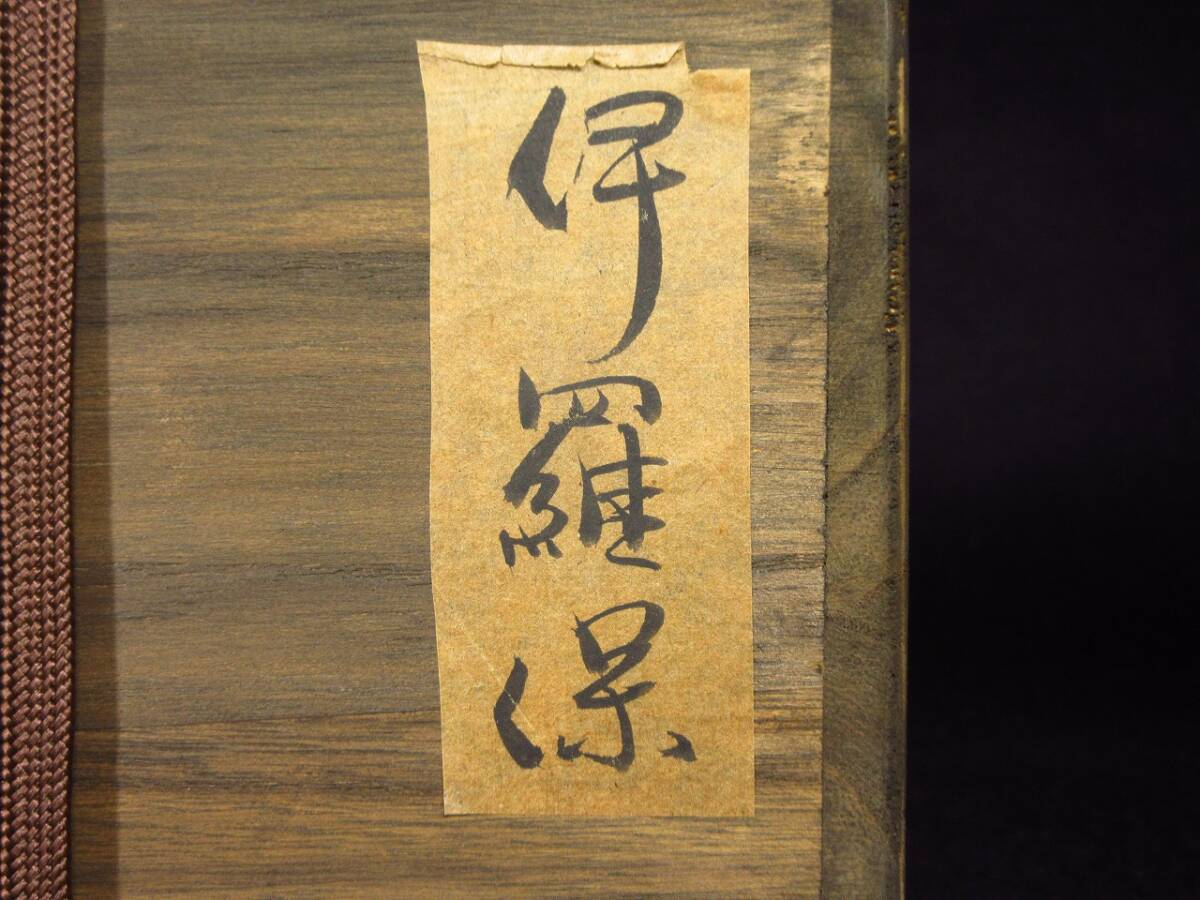 伊羅保